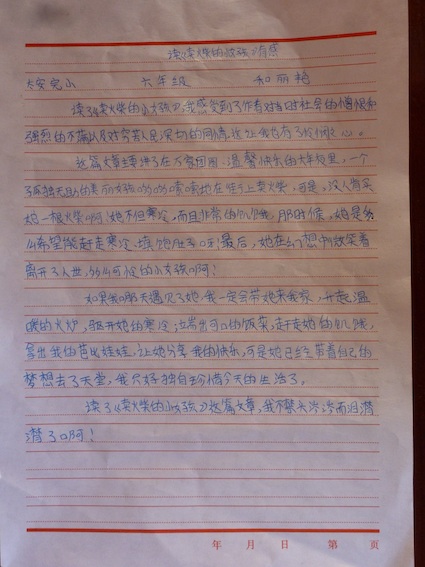 读《卖火柴的小女孩》有感
太安完小 六年级 和丽艳
读了《卖火柴的小女孩》,我感受到了作者对当时社会的憎恨和
强烈的不满以及对穷苦人民深切的同情,这让我也有了怜悯之心。
这篇文章主要讲了在万家团圆、温馨快乐的大年夜里,一个
孤独无助的卖火柴女孩哆哆嗦嗦地在街上卖火柴,可是,没人肯买
她一根火柴啊!她不但寒冷,而且非常的饥饿,那时候,她是多
么希望能赶走寒冷、填饱肚子啊!最后,她在幻想中微笑着
离开了人世,多么可怜的小女孩啊!
如果我那天遇见了她,我一定会带她来我家,升起温
暖的火炉,驱开她的寒冷,过当出可口的饭菜,赶走她的饥饿,
拿出我的芭比娃娃,让她分享我的快乐,可是她已经带着自己的
梦想去了天堂,我只好独自珍惜今天的生活了。
读了《卖火柴的小女孩》这篇文章,我不禁头涔涔而泪潸
潸了啊!
年 月 日 第 页